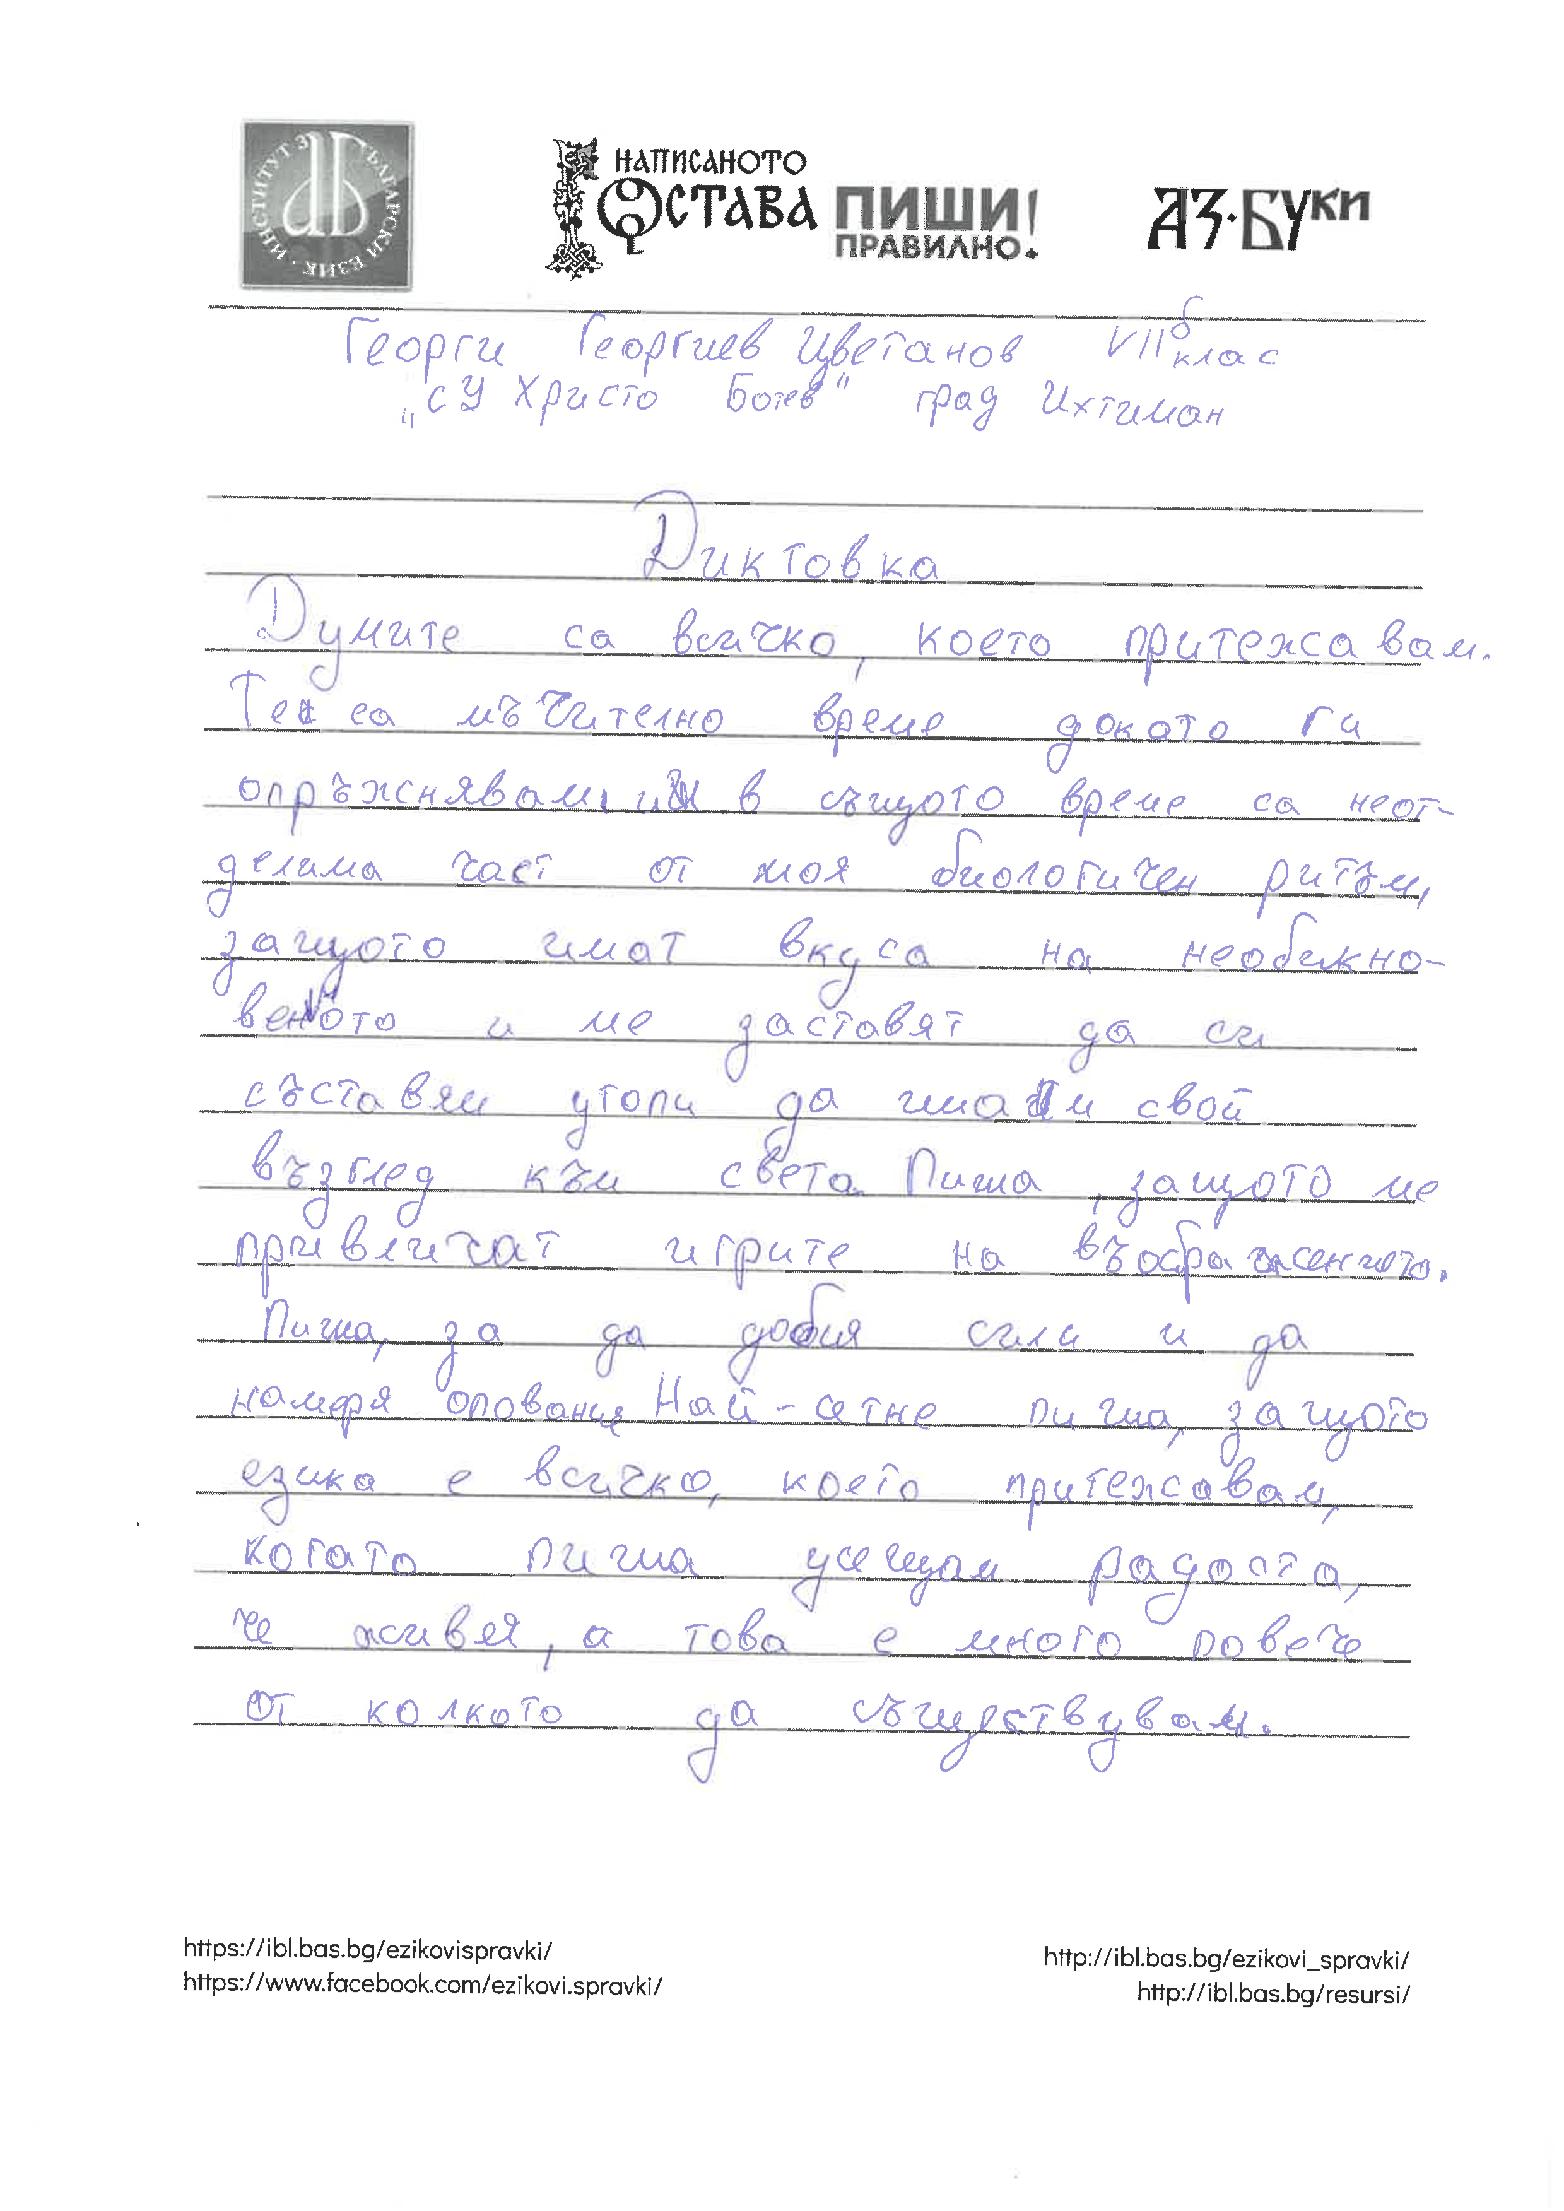 ИНСТИТУТ ЗА БЪЛГАРСКИ ЕЗИК
НАПИСАНОТО ОСТАВА ПИШИ ПРАВИЛНО! АЗ·БУКИ
Георги Георгиев Цветанов VII б клас
„СУ Христо Ботев" град Ихтиман
Диктовка
Думите са всичко, което притежавам.
Те са мъчително време докато ги
опръжснявам и в същото време са неот-
делима част от моя биологичен ритъм,
защото имат вкуса на необекно-
веното и ме заставят да си
съставям утопи да имам свой
възглед към света. Пиша, защото ме
привличат игрите на въображението.
Пиша, за да добия сили и да
намеря опование Най-сетне пиша, защото
езика е всичко, което притежавам,
когато пиша усещам радоста,
че живея, а това е много повече
от колкото да съществувам.
https://ibl.bas.bg/ezikovispravki/ http://ibl.bas.bg/ezikovi_spravki/
https://www.facebook.com/ezikovi.spravki/ http://ibl.bas.bg/resursi/